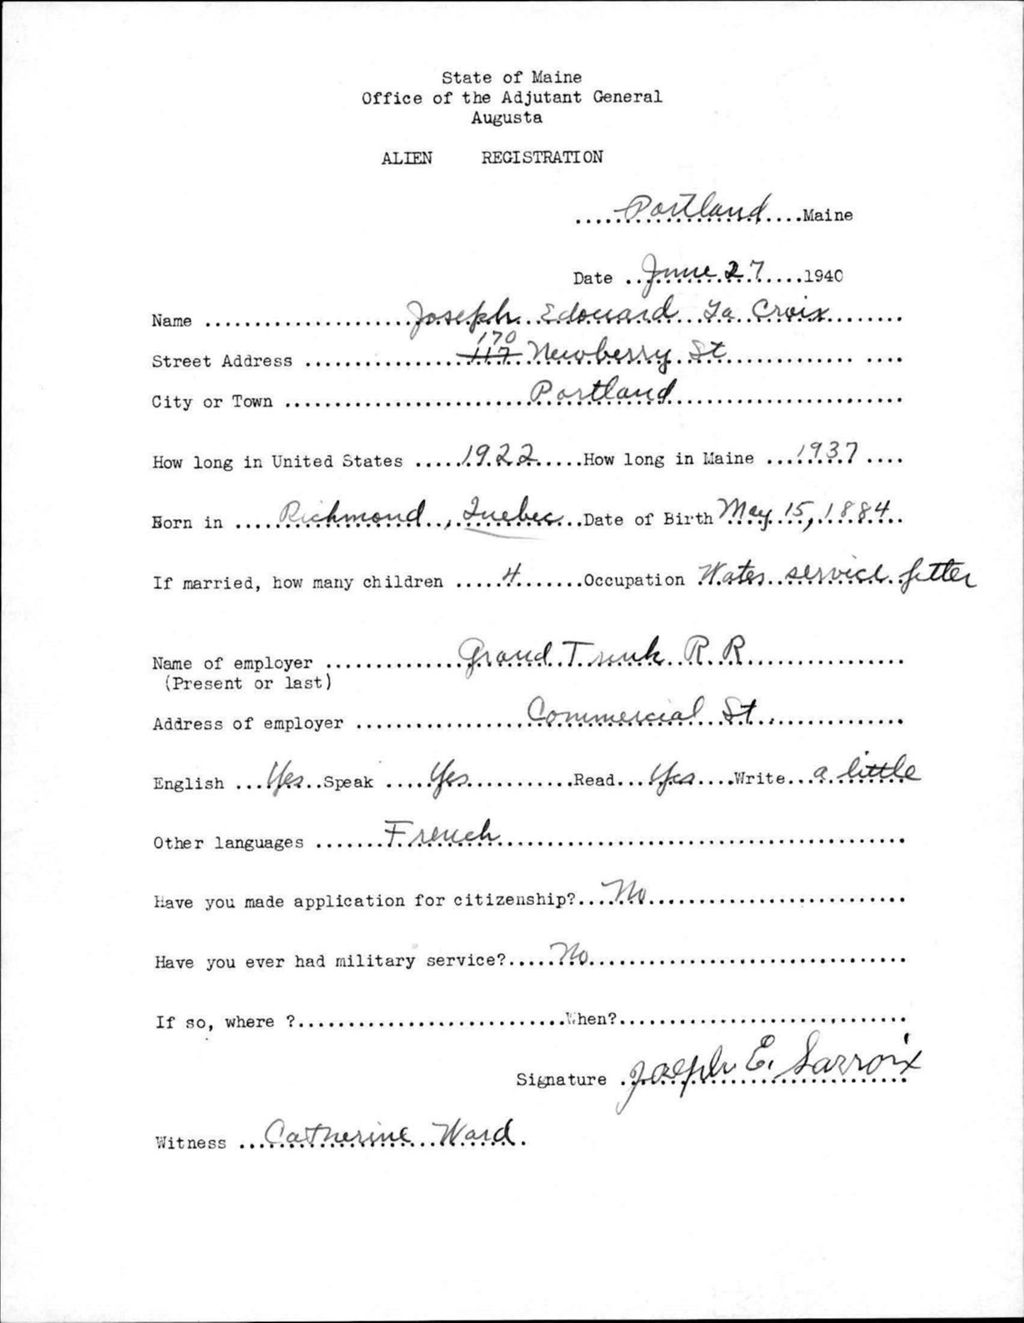 State of Maine
Office of the Adjutant General
Augusta
ALIEN REGISTRATION
.....Portland....Maine
Date ..June 27....1940
Name .....................Joseph Edouard La Croix........
170
Street Address ..................117 Newberry St.................. ....
City or Town ........................Portland.......................
How long in United States .....1922.....How long in Maine ...1937....
Born in ....Richmond, Quebec..Date of Birth May 15, 1884..
If married, how many children .....4.......Occupation Water service fitter
Name of employer .............Grand Trunk R. R................
(Present or last)
Address of employer .................Commercial St..............
English ...Yes..Speak .....Yes...........Read...Yes....Write...a little
Other languages .......French.........................................
Have you made application for citizenship?...No..........................
Have you ever had military service?.....No................................
If so, where ?...........................When?.............................
Signature .Joseph E. Larroix
Witness ...Catherine Ward.